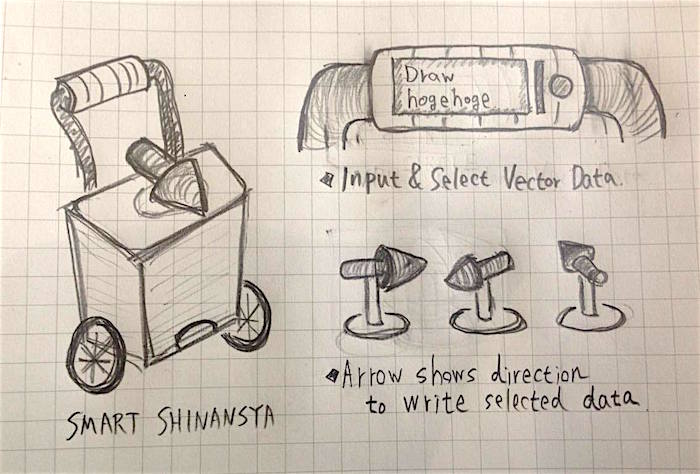 Draw
hogehoge
Input & Select Vector Data.
Arrow shows direction
to write selected data.
SMART SHINANSYA